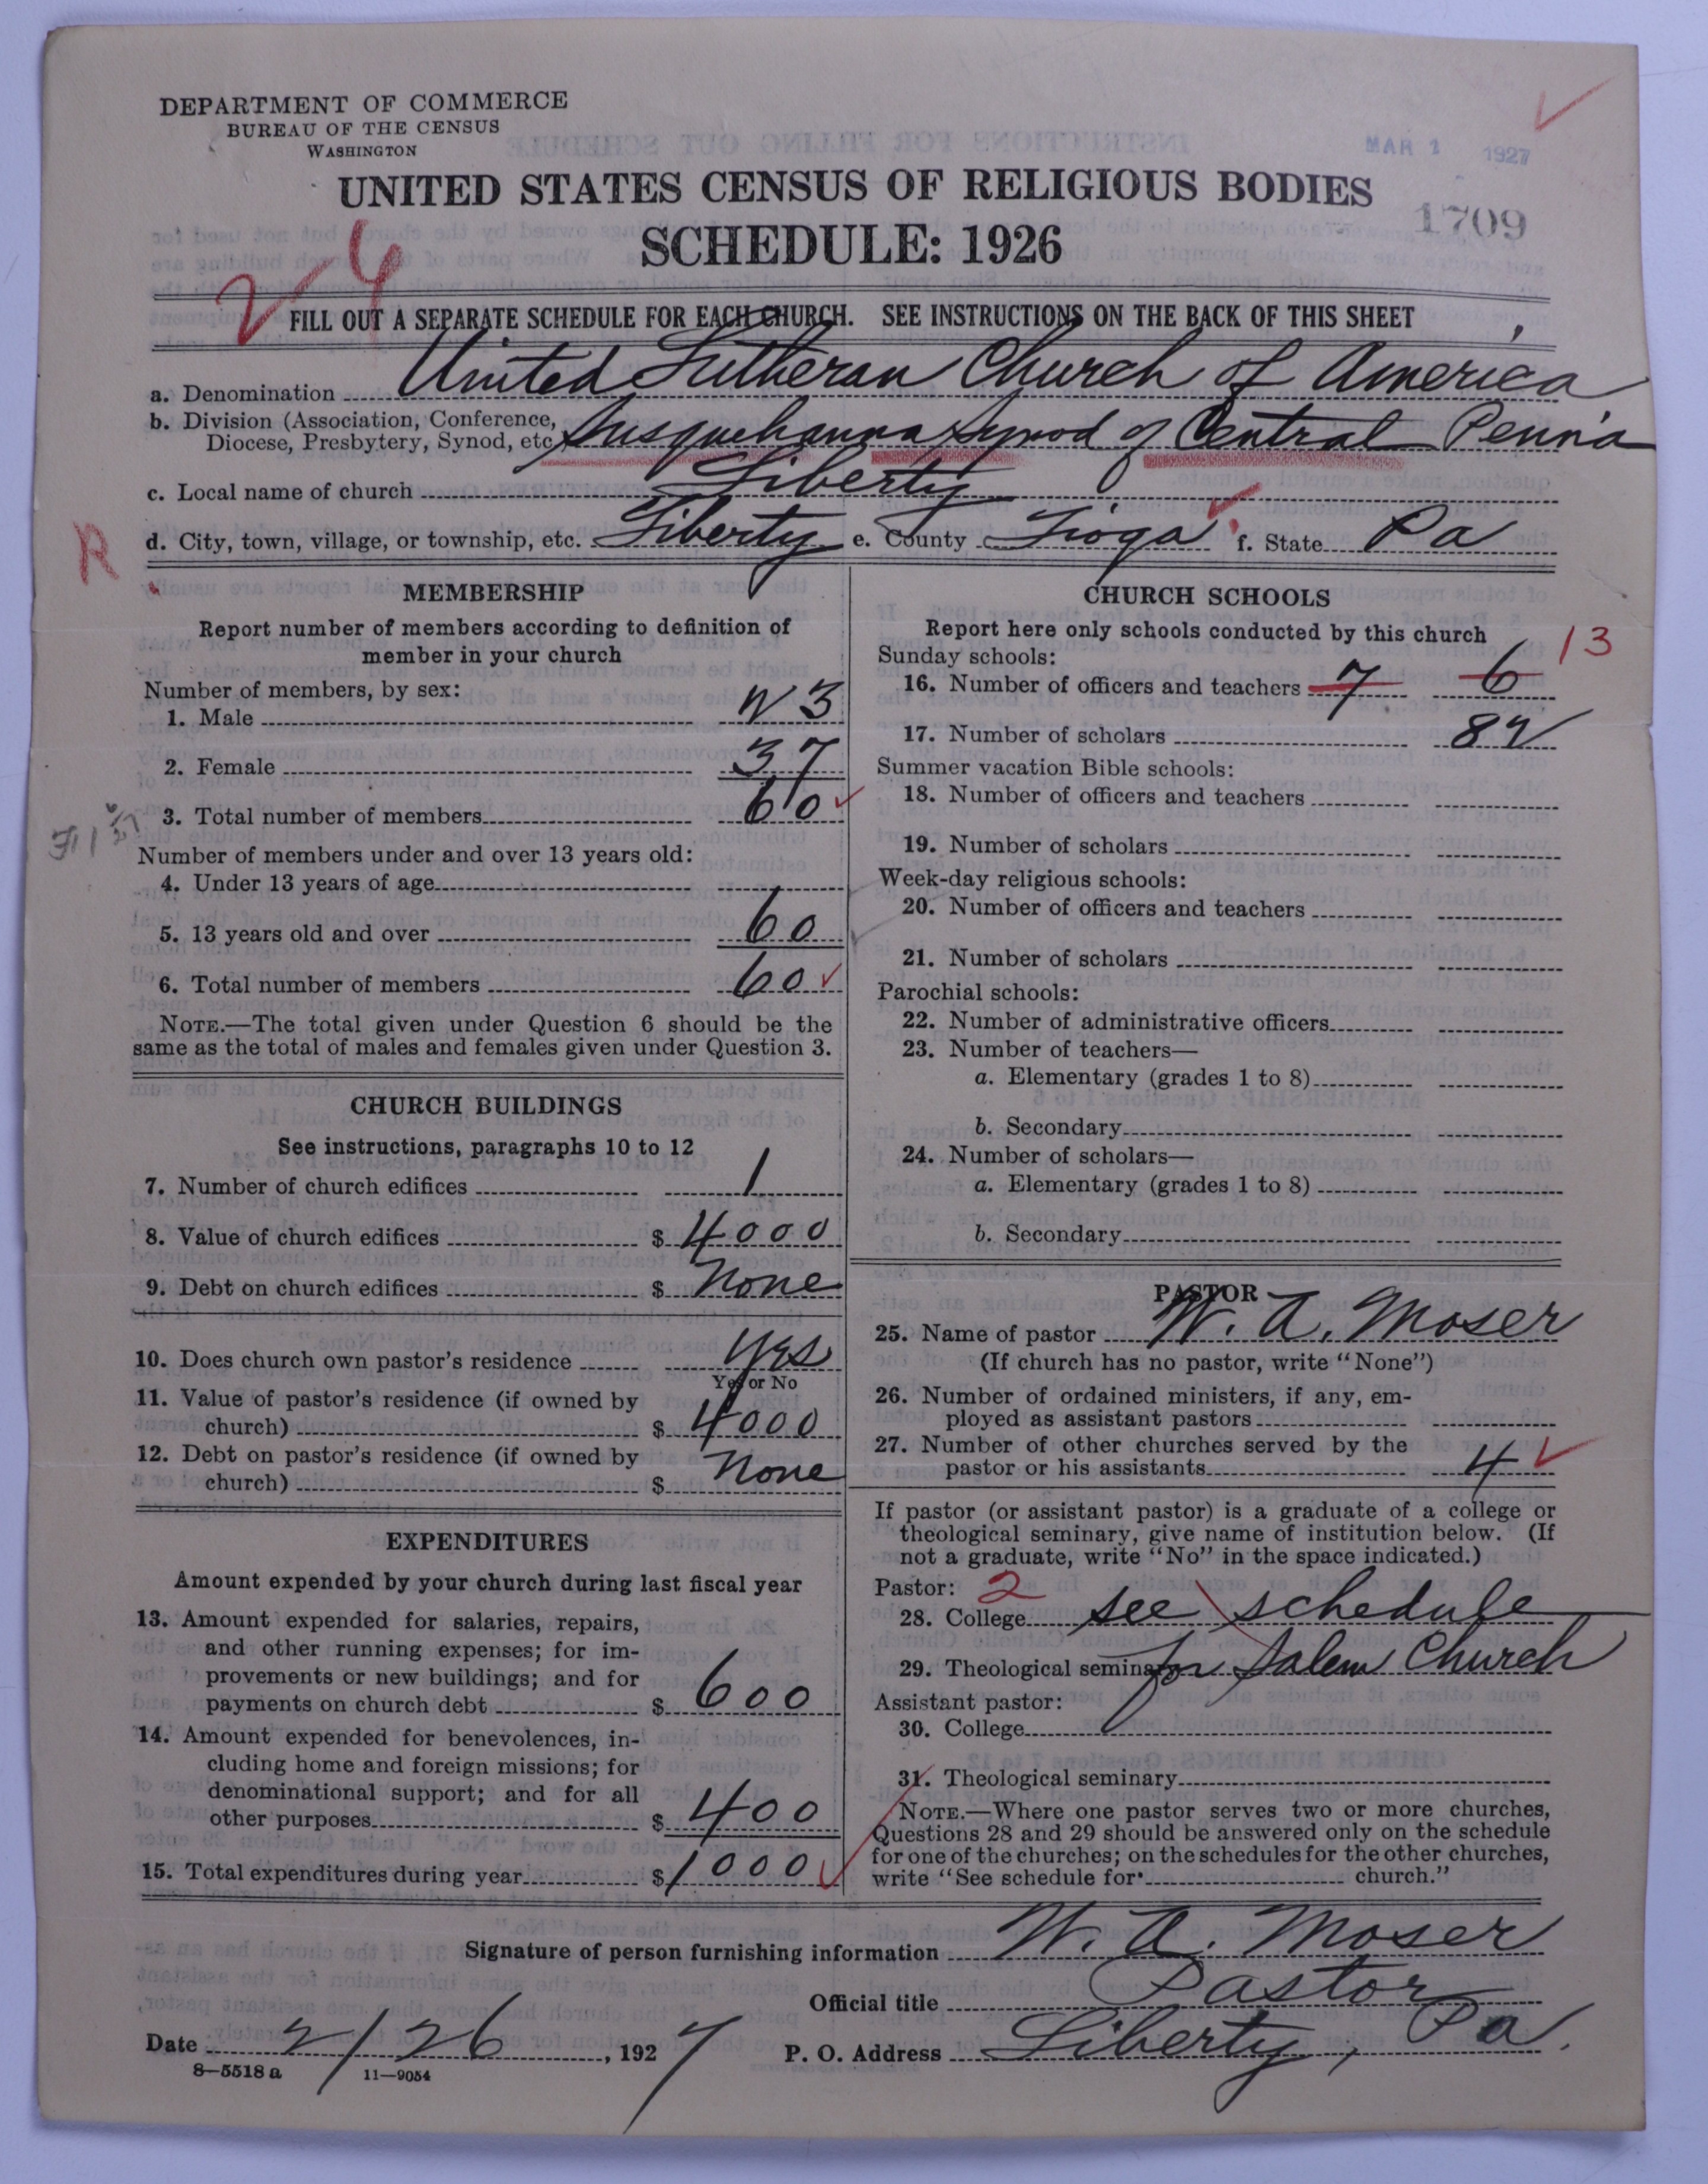 DEPARTMENT OF COMMERCE
BUREAU OF THE CENSUS
WASHINGTON
MAR 1 1927
UNITED STATES CENSUS OF RELIGIOUS BODIES
1709
SCHEDULE: 1926
FILL OUT A SEPARATE SCHEDULE FOR EACH CHURCH. SEE INSTRUCTIONS ON THE BACK OF THIS SHEET
a. Denomination United Lutheran Church of America
b. Division (Association, Conference,
Diocese, Presbytery, Synod, etc. Susquehanna Synod of Central Penna
c. Local name of church Liberty
R
d. City, town, village, or township, etc. Liberty e. County Tioga f. State Pa
MEMBERSHIP
Report number of members according to definition of
member in your church
Number of members, by sex:
1. Male 23
2. Female 37
3. Total number of members 60
Number of members under and over 13 years old:
4. Under 13 years of age
5. 13 years old and over 60
6. Total number of members 60
NOTE.—The total given under Question 6 should be the
same as the total of males and females given under Question 3.
CHURCH BUILDINGS
See instructions, paragraphs 10 to 12
7. Number of church edifices 1
8. Value of church edifices $ 4000
9. Debt on church edifices $ None
10. Does church own pastor's residence Yes
Yes or No
11. Value of pastor's residence (if owned by
church) $ 4000
12. Debt on pastor's residence (if owned by
church) $ None
EXPENDITURES
Amount expended by your church during last fiscal year
13. Amount expended for salaries, repairs,
and other running expenses; for im-
provements or new buildings; and for
payments on church debt $ 600
14. Amount expended for benevolences, in-
cluding home and foreign missions; for
denominational support; and for all
other purposes $ 400
15. Total expenditures during year $ 1000
CHURCH SCHOOLS
Report here only schools conducted by this church
Sunday schools: 13
16. Number of officers and teachers 7 6
17. Number of scholars 82
Summer vacation Bible schools:
18. Number of officers and teachers
19. Number of scholars
Week-day religious schools:
20. Number of officers and teachers
21. Number of scholars
Parochial schools:
22. Number of administrative officers
23. Number of teachers—
a. Elementary (grades 1 to 8)
b. Secondary
24. Number of scholars—
a. Elementary (grades 1 to 8)
b. Secondary
PASTOR
25. Name of pastor W. A. Moser
(If church has no pastor, write "None")
26. Number of ordained ministers, if any, em-
ployed as assistant pastors
27. Number of other churches served by the
pastor or his assistants 4
If pastor (or assistant pastor) is a graduate of a college or
theological seminary, give name of institution below. (If
not a graduate, write "No" in the space indicated.)
Pastor: 2
28. College see schedule
29. Theological seminary for Salem Church
Assistant pastor:
30. College
31. Theological seminary
NOTE.—Where one pastor serves two or more churches,
Questions 28 and 29 should be answered only on the schedule
for one of the churches; on the schedules for the other churches,
write "See schedule for church."
Signature of person furnishing information W. A. Moser
Official title Pastor
Date 2/26, 1927 P. O. Address Liberty, Pa.
8—5518 a 11—9054